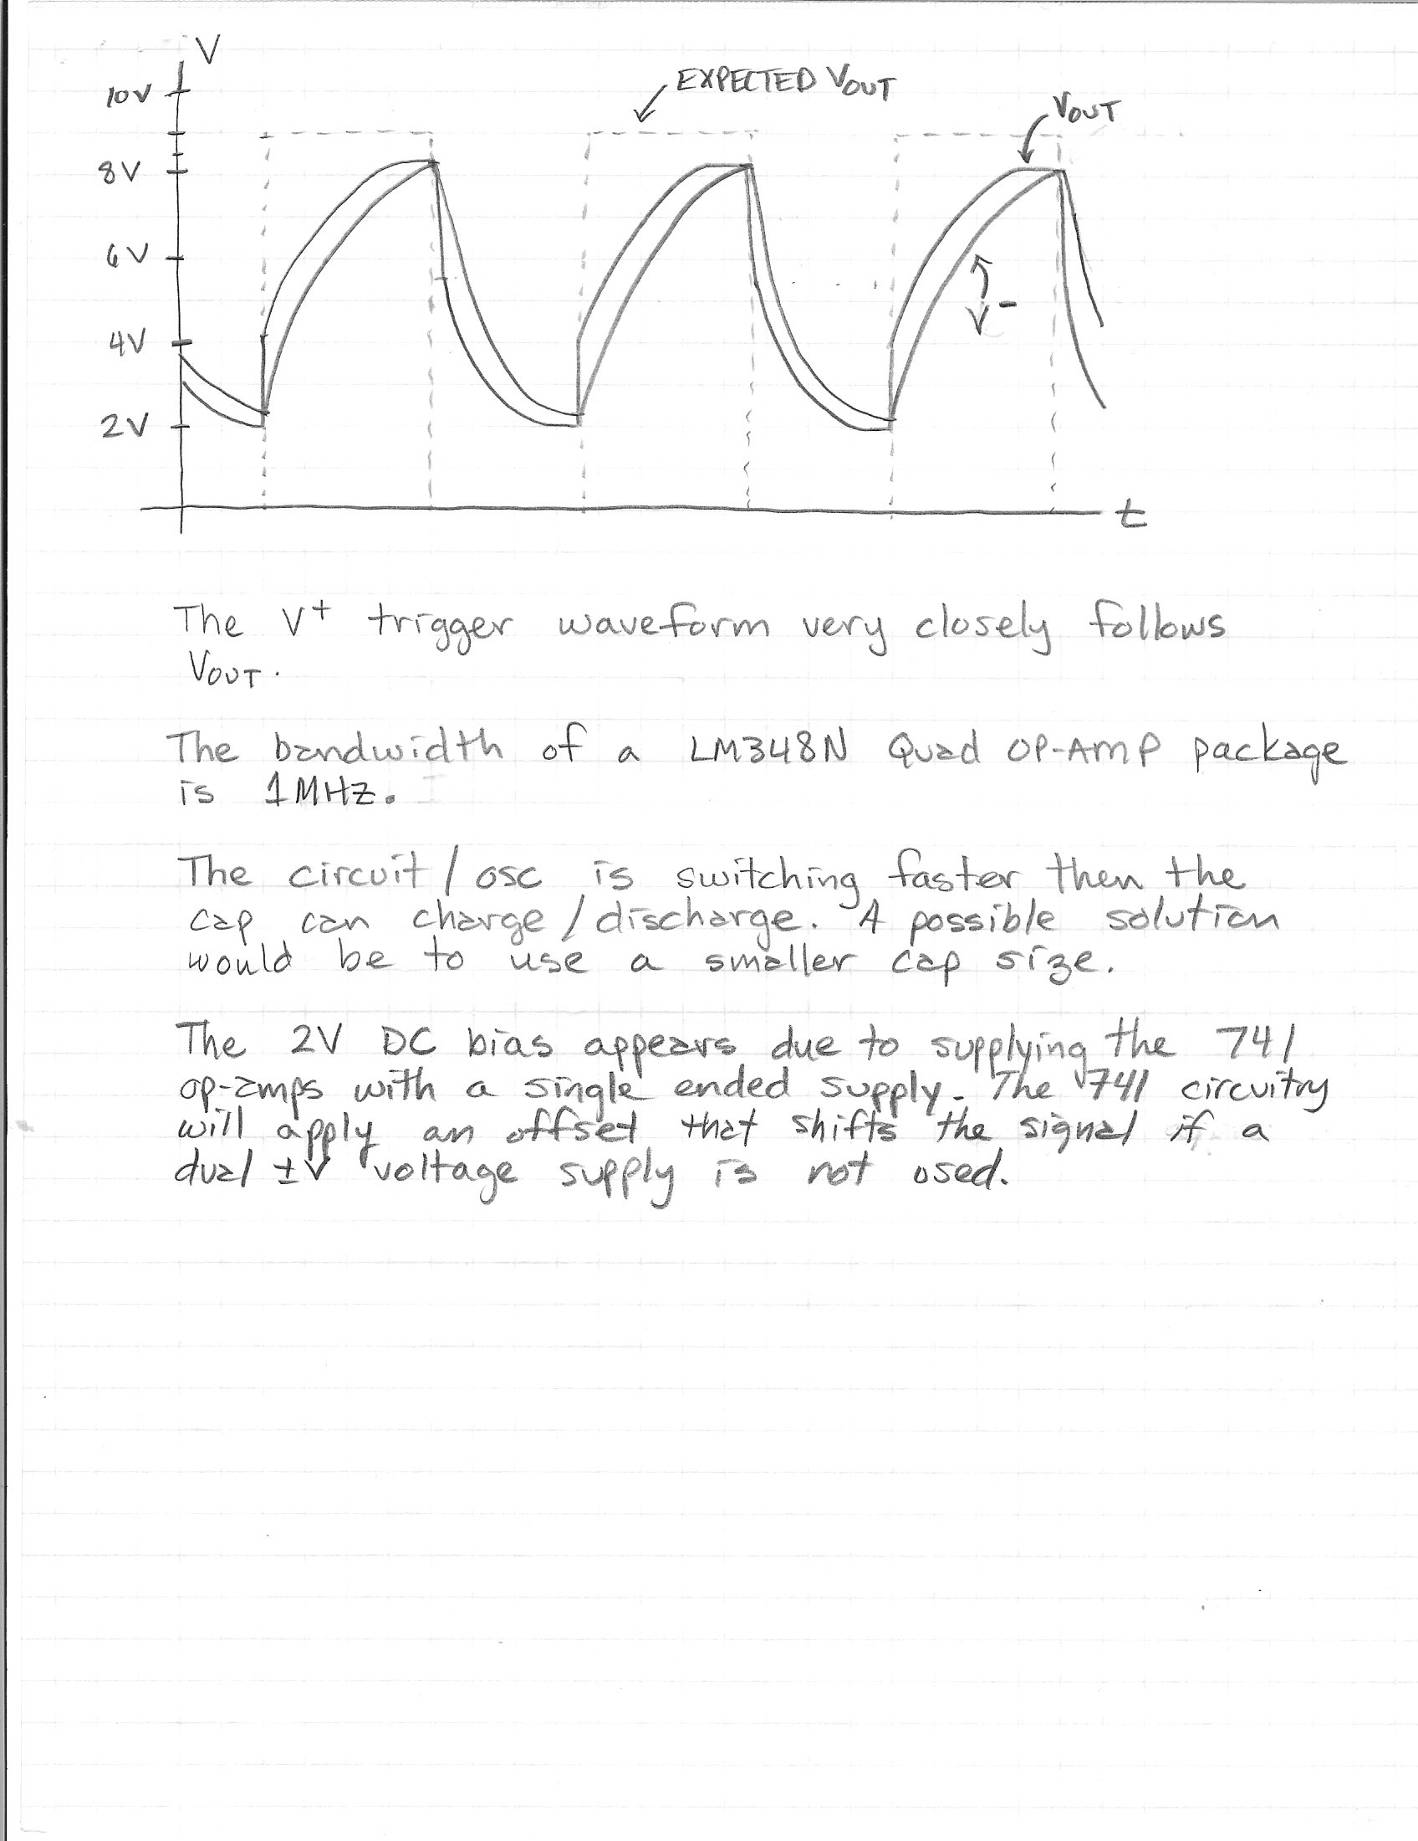 V
10V
EXPECTED VOUT
VOUT
8V
6V
4V
V-
2V
t
The V+ trigger waveform very closely follows
VOUT.
The bandwidth of a LM348N Quad OP-AMP package
is 1MHZ.
The circuit/osc is switching faster then the
cap can charge/discharge. A possible solution
would be to use a smaller cap size.
The 2V DC bias appears due to supplying the 741
op-amps with a single ended supply. The 741 circuitry
will apply an offset that shifts the signal if a
dual ±V voltage supply is not used.